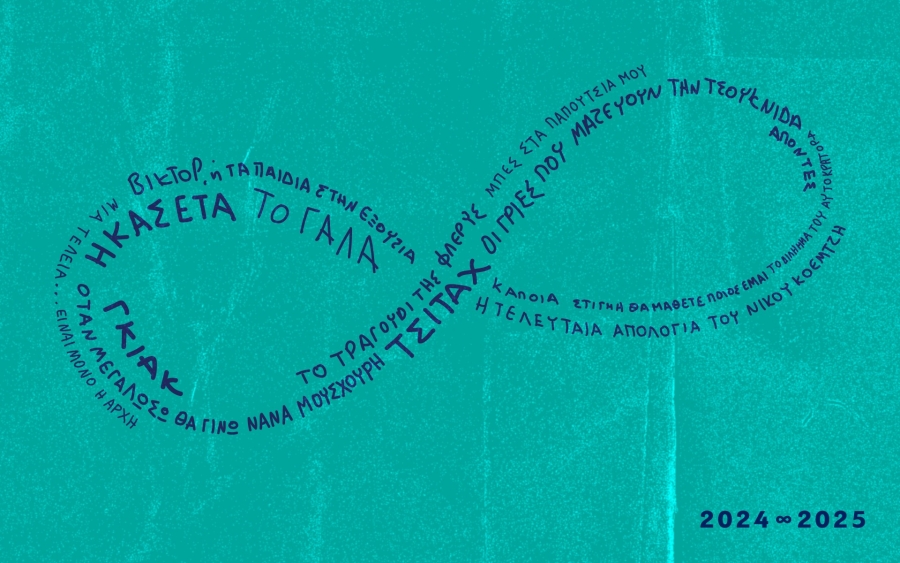 ΒΙΚΤΟΡ, ή ΤΑ ΠΑΙΔΙΑ ΣΤΗΝ ΕΞΟΥΣΙΑ
Η ΚΑΣΕΤΑ
ΤΟ ΓΑΛΑ
ΜΙΑ ΤΕΛΕΙΑ... ΕΙΝΑΙ ΜΟΝΟ Η ΑΡΧΗ
ΓΚΙΑΚ
ΟΤΑΝ ΜΕΓΑΛΩΣΩ ΘΑ ΓΙΝΩ ΝΑΝΑ ΜΟΥΣΧΟΥΡΗ
ΤΟ ΤΡΑΓΟΥΔΙ ΤΗΣ ΦΛΕΡΥΣ
ΤΣΙΤΑΧ
ΜΠΕΣ ΣΤΑ ΠΑΠΟΥΤΣΙΑ ΜΟΥ
ΟΙ ΓΡΙΕΣ ΠΟΥ ΜΑΖΕΥΟΥΝ ΤΗΝ ΤΣΟΥΚΝΙΔΑ
ΑΠΟΝΤΕΣ
ΚΑΠΟΙΑ ΣΤΙΓΜΗ ΘΑ ΜΑΘΕΤΕ ΠΟΙΟΣ ΕΙΜΑΙ
ΤΟ ΔΙΛΗΜΜΑ ΤΟΥ ΑΥΤΟΚΡΑΤΟΡΑ
Η ΤΕΛΕΥΤΑΙΑ ΑΠΟΛΟΓΙΑ ΤΟΥ ΝΙΚΟΥ ΚΟΕΜΤΖΗ
2024∞2025